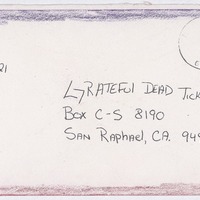 21
GRATEFUL DEAD TICK
BOX C-S 8190
SAN RAPHAEL, CA. 949